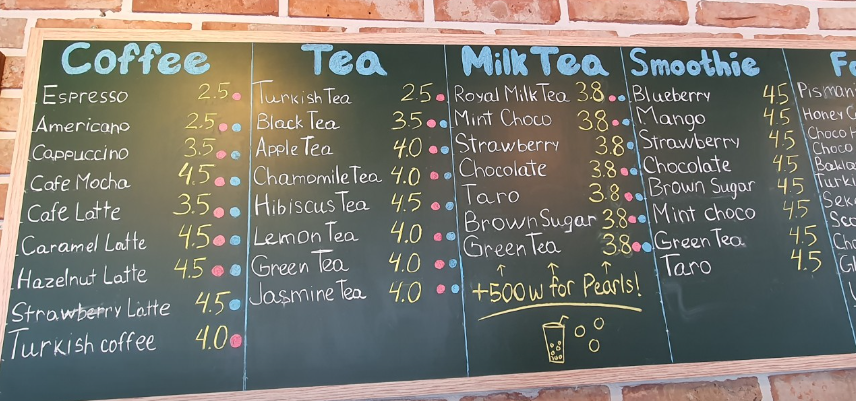 Coffee
Espresso 2.5
Americano 2.5
Cappuccino 3.5
Cafe Mocha 4.5
Cafe Latte 3.5
Caramel Latte 4.5
Hazelnut Latte 4.5
Strawberry Latte 4.5
Turkish coffee 4.0
Tea
Turkish Tea 2.5
Black Tea 3.5
Apple Tea 4.0
Chamomile Tea 4.0
Hibiscus Tea 4.5
Lemon Tea 4.0
Green Tea 4.0
Jasmine Tea 4.0
Milk Tea
Royal Milk Tea 3.8
Mint Choco 3.8
Strawberry 3.8
Chocolate 3.8
Taro 3.8
Brown Sugar 3.8
Green Tea 3.8
+500w for Pearls!
Smoothie
Blueberry 4.5
Mango 4.5
Strawberry 4.5
Chocolate 4.5
Brown Sugar 4.5
Mint choco 4.5
Green Tea 4.5
Taro 4.5
Honey
Choco
Choco